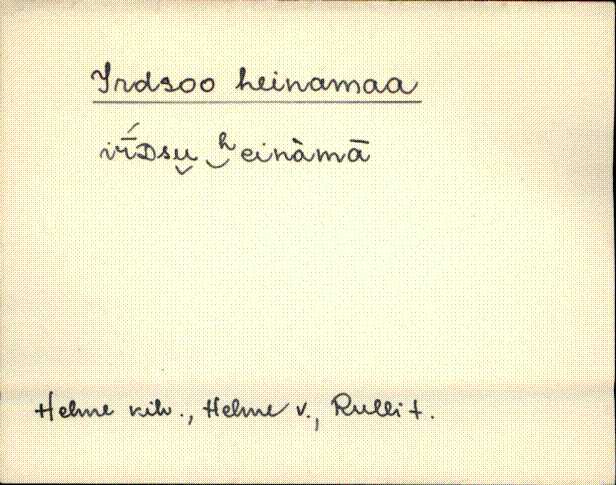 Irdsoo heinamaa
ir̄́ᴅsu̬ ‿ʰeinàmā
Helme kih., Helme v., Rulli t.